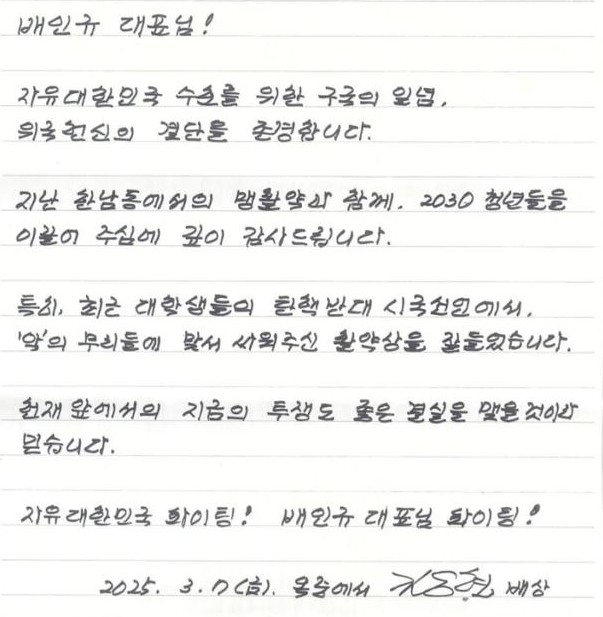 배인규 대표님!
자유대한민국 수호를 위한 구국의 일념,
위국헌신의 결단을 존경합니다.
지난 한남동에서의 맹활약과 함께, 2030 청년들을
이끌어 주심에 깊이 감사드립니다.
특히, 최근 대학생들의 탄핵반대 시국선언에서,
'악'의 무리들에 맞서 싸워주신 활약상을 잘들었습니다.
헌재 앞에서의 지금의 투쟁도 좋은 결실을 맺을 것이라
믿습니다.
자유대한민국 화이팅! 배인규 대표님 화이팅!
2025. 3. 7(금). 옥중에서 김용현 배상